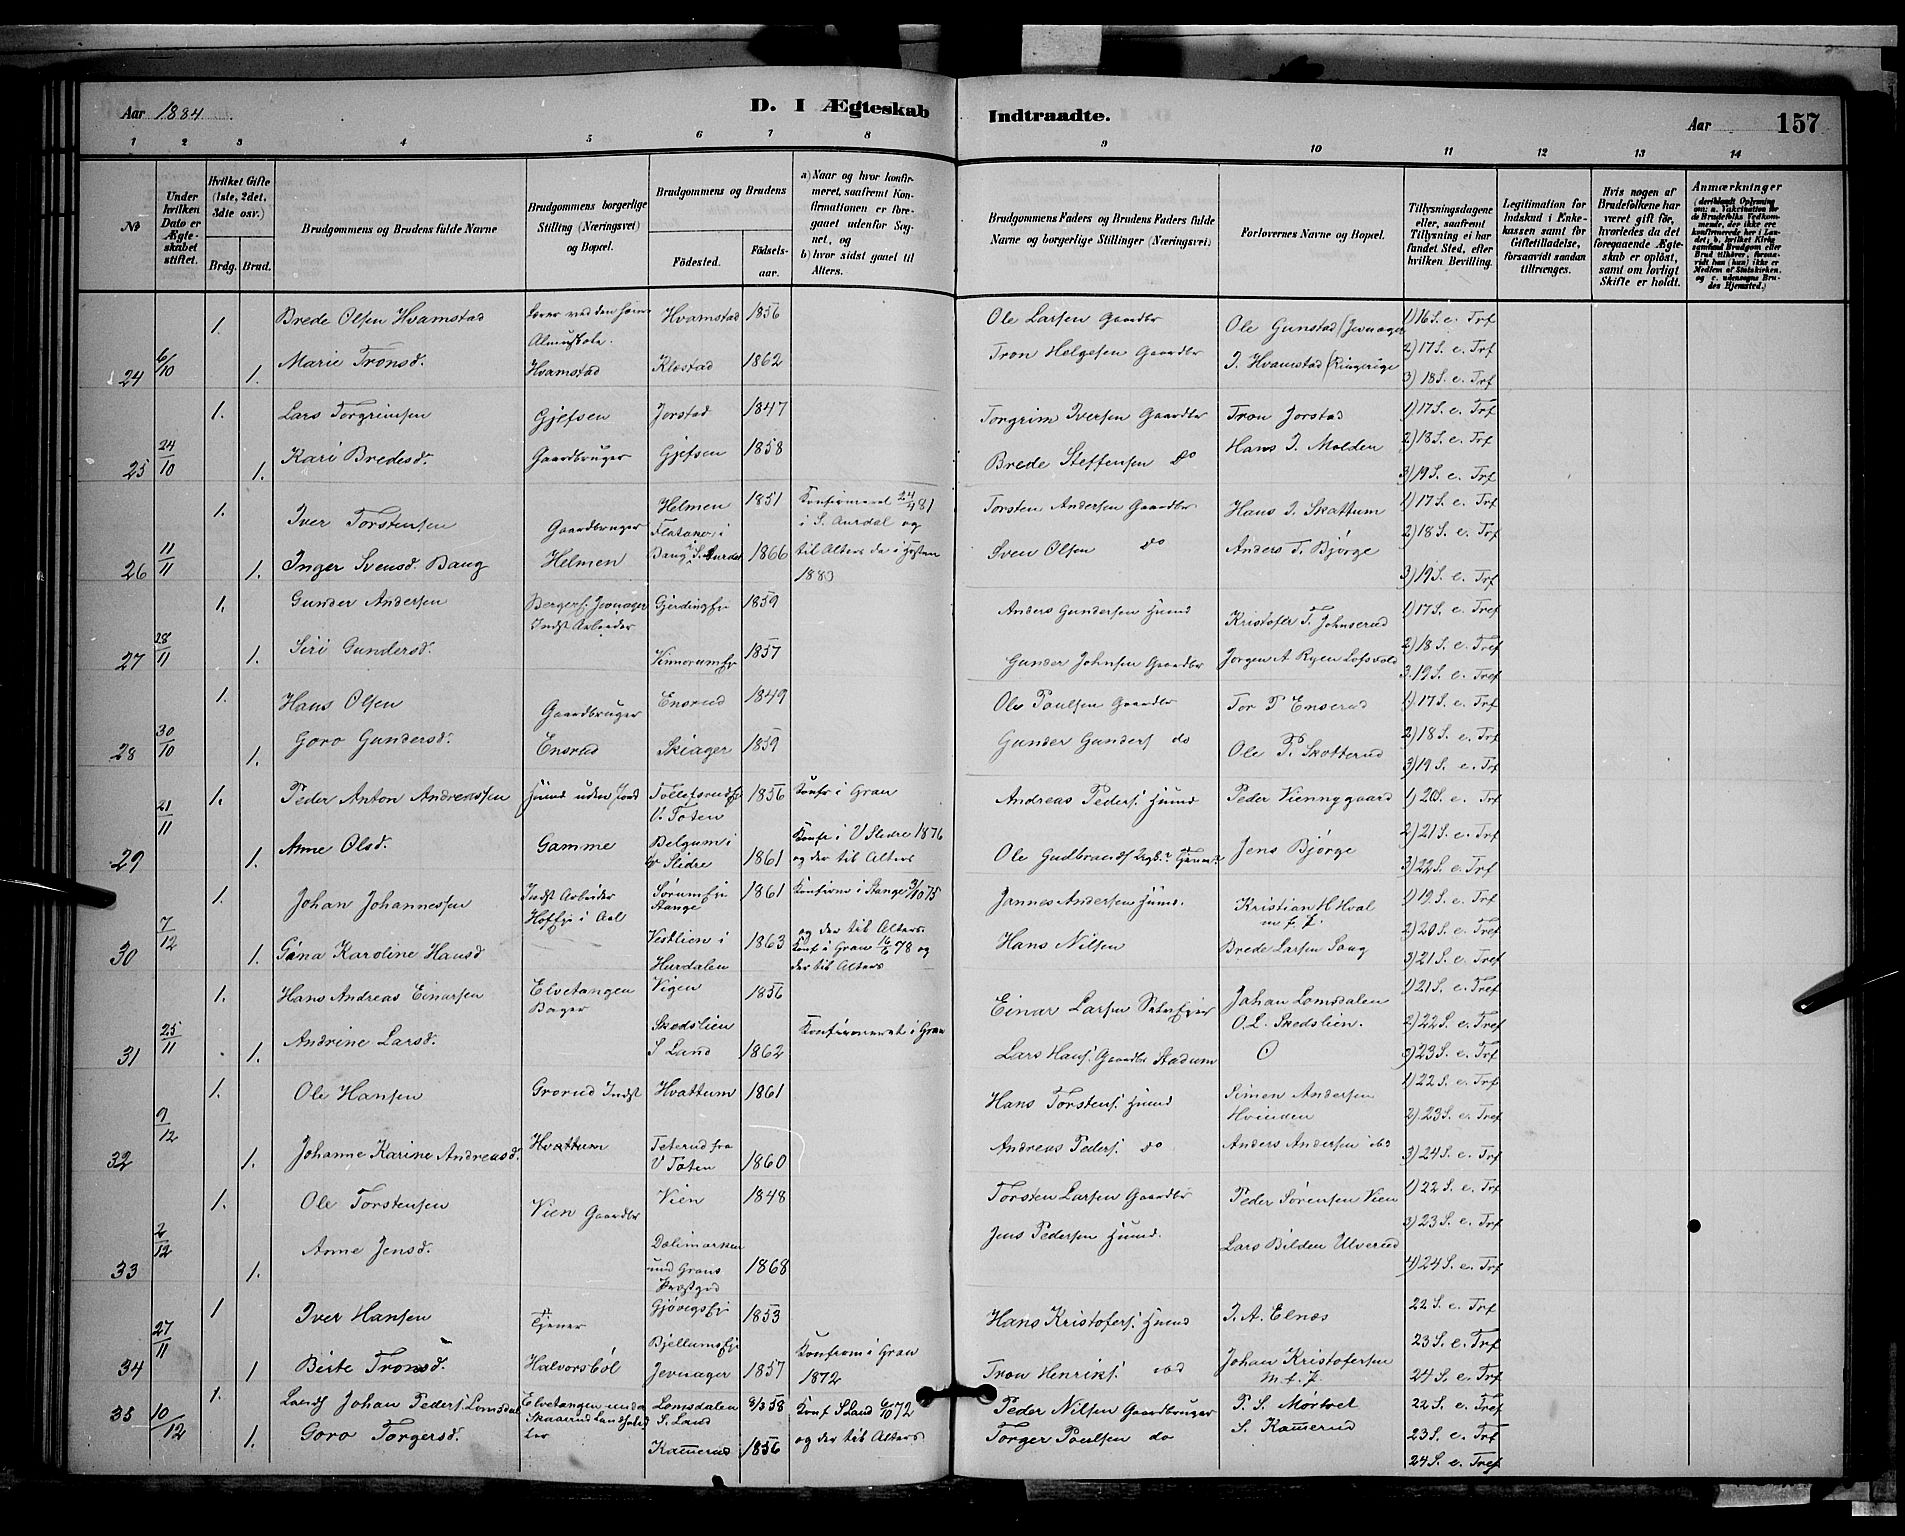 Aar 1884.
D. I Ægteskab
Indtraadte.
Aar
157
1 2 3 4 5 6 7 8 9 10 11 12 13 14
No
Under hvilken Dato er Ægteskabet stiftet.
Hvilket Gifte (1ste, 2det, 3die osv.)
Brdg. Brud.
Brudgommens og Brudens fulde Navne
Brudgommens borgerlige Stilling (Næringsvei) og Bopæl.
Brudgommens og Brudens
Fødested.
Fødselsaar.
a) Naar og hvor konfirmeret, saafremt Konfirmationen er foregaaet udenfor Sognet, og
b) hvor sidst gaaet til Alters.
Brudgommens Faders og Brudens Faders fulde Navne og borgerlige Stillinger (Næringsvei)
Forlovernes Navne og Bopæl.
Tillysningsdagene eller, saafremt Tillysning ei har fundet Sted, efter hvilken Bevilling.
Legitimation for Indskud i Enkekassen samt for Giftetilladelse, forsaavidt saadan tiltrænges.
Hvis nogen af Brudefolkene har været gift før, hvorledes da det foregaaende Ægteskab er opløst, samt om lovligt Skifte er holdt.
Anmærkninger
1. Brede Olsen Hvamstad Hvamstad 1856 Ole Larsen Gaardbr Ole Gunstad (Jevnager 1) 16 S. e. Trf
2) 17 S. e. Trf
24 6/10 1. Marie Tronsd. Hvamstad Klæstad 1862 Tron Helgesen Gaardbr I. Hvamstad (Ringerige 3) 18 S. e. Trf
1. Lars Torgrimsen Gjefsen Jorstad 1847 Torgrim Iversen Gaardbr Tron Jorstad 1) 17 S. e. Trf
2) 18 S. e. Trf
25 24/10 1. Kari Bredesd. Gaardbruger Gjefsen 1858 Brede Steffensen do Hans I. Molden 3) 19 S. e. Trf
1. Iver Torstensen Gaardbruger Helmen 1851 Konfirmeret 24/4 81 i S. Aurdal og Torsten Andersen Gaardbr Hans I. Skattum 1) 17 S. e. Trf
2) 18 S. e. Trf
26 11/11 1. Inger Svensd. Bang Helmen Bang i S. Aurdal 1866 til Alters da i Høsten 1883 Sven Olsen do Anders T. Bjørge 3) 19 S. e. Trf
1. Gunder Andersen Indst Arbeider Gjerdingei 1859 Anders Gundersen Husmd Kristofer T. Johnserud 1) 17 S. e. Tref
2) 18 S. e. Tref
27 28/11 1. Siri Gundersd. 1857 Gunder Johnsen Gaardbr Jørgen A. Ryen 3. 19 S. e. Tref
1. Hans Olsen Gaardbruger Ensrud 1849 Ole Paulsen Gaardbr Tor P Enserud 1) 17 S. e. Trf
2) 18 S. e. Trf
28 30/10 1. Goro Gundersd. Ensrud Skiager 1859 Gunder Gunders do Ole P. Skotterud 3) 19 S. e. Trf
1. Peder Anton Andreassen Husmd uden Jord V. Toten 1856 Konfr i Gran Andreas Peders. Husmd Peder Viennygaard 1) 20 S. e. Trf
2) 21 S. e. Trf
29 21/11 1. Anne Olsd. Gamme Belgum i V Slidre 1861 Konfr i V Slidre 1876 og der til Alters Ole Gudbrands Jens Bjørge 3) 22 S. e. Trf
1. Johan Johannessen Indst Arbeider Hoffei i Aal Sørumei Stange 1861 Konfirm i Stange 3/10 75 og der til Alters. Jannes Andersen Husmd. Kristian H Hval m. f. J. 1) 19 S. e. Tref
2) 20 S. e. Tref
30 7/12 1. Gina Karoline Hansd Vestlien i Hurdalen 1863 Konf i Gran 16/6 78 og der til Alters Hans Nilsen Brede Larsen Saug 3) 21 S. e. Tref
1. Hans Andreas Einarsen Elvetangen Bager Vigen 1856 Einar Larsen Johan Lomsdalen 1) 21 S. e. Tref
O. L. Skedslien. 2) 22 S. e. Tref
31 25/11 1. Andrine Larsd. Skedslien S Land 1862 Konfirmeret i Gran Lars Hans. Gaardbr Stadum 3) 23 S. e. Trf
1. Ole Hansen Grorud Indst Hvattum 1861 Hans Torstens. Husmd Simen Andersen Hvinden 1) 22 S. e. Trf
2) 23 S. e. Tref
32 9/12 1. Johanne Karine Andreasd. Hvattum Teterud fra V Toten 1860 Andreas Peders. do Anders Andersen ibd 3) 24 S. e. Trf
1. Ole Torstensen Vien Gaardbr Vien 1848 Torsten Larsen Gaardbr Peder Sørensen Vien 1) 22 S. e. Trf
3) 23 S. e. Trf
33 2/12 1. Anne Jensd. Dælimarken und Grans Præstgrd 1868 Jens Pedersen Husmd. Lars Bilden Ulverud 4) 24 S. e. Trf
1 Iver Hansen Tjener Gjøvigsei 1853 Hans Kristofers. Husmd I. A. Elnæs 22 S. e. Trf
23 S. e. Trf
34 27/11 1 Berte Tronsd. Halvorsbøl Bjellumsei Jevnager 1857 Konfrom i Gran 1872 Tron Henriks. ibd Johan Kristofersen m. f. J. 24 S. e. Trf
35 10/12 1. Johan Peders. Lomsdal Elvetangen und. Lomsdalen S. Land 8/3 58 Konf S Land 6/10 72 Peder Nilsen Gaardbruger P. S. Mørtvet 22 S. e. Tref
23 S. e. Trf
1. Goro Torgersd. Kamerud 1856 og der til Alters Torger Poulsen do S. Kamerud 24 S. e. Tref